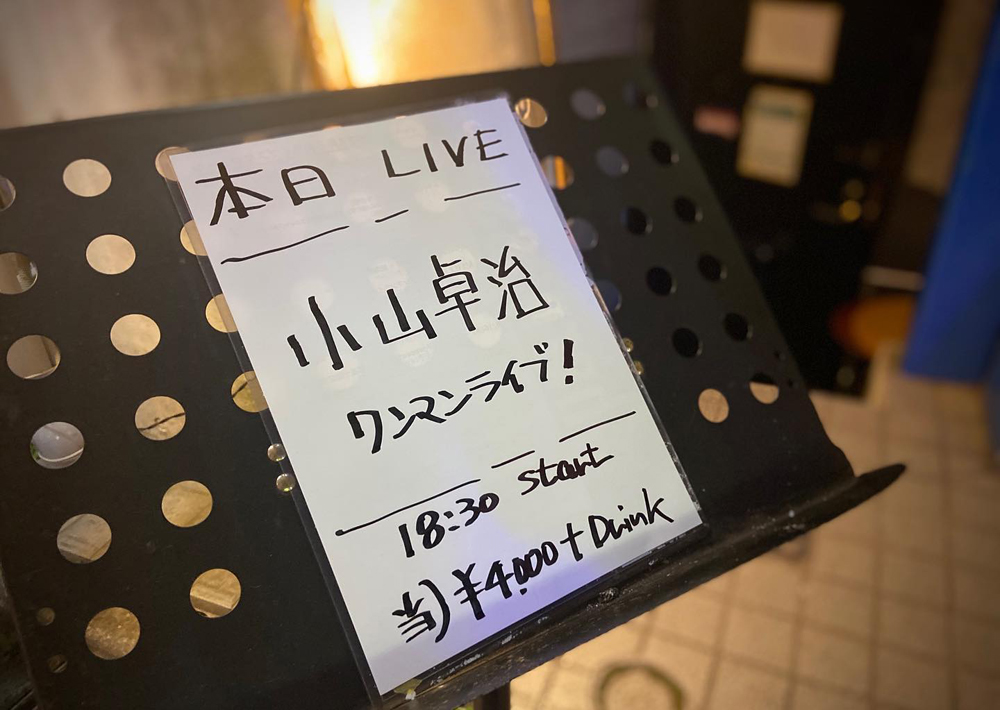 本日 LIVE
小山卓治
ワンマンライブ!
18:30 start
当)¥4,000+Drink